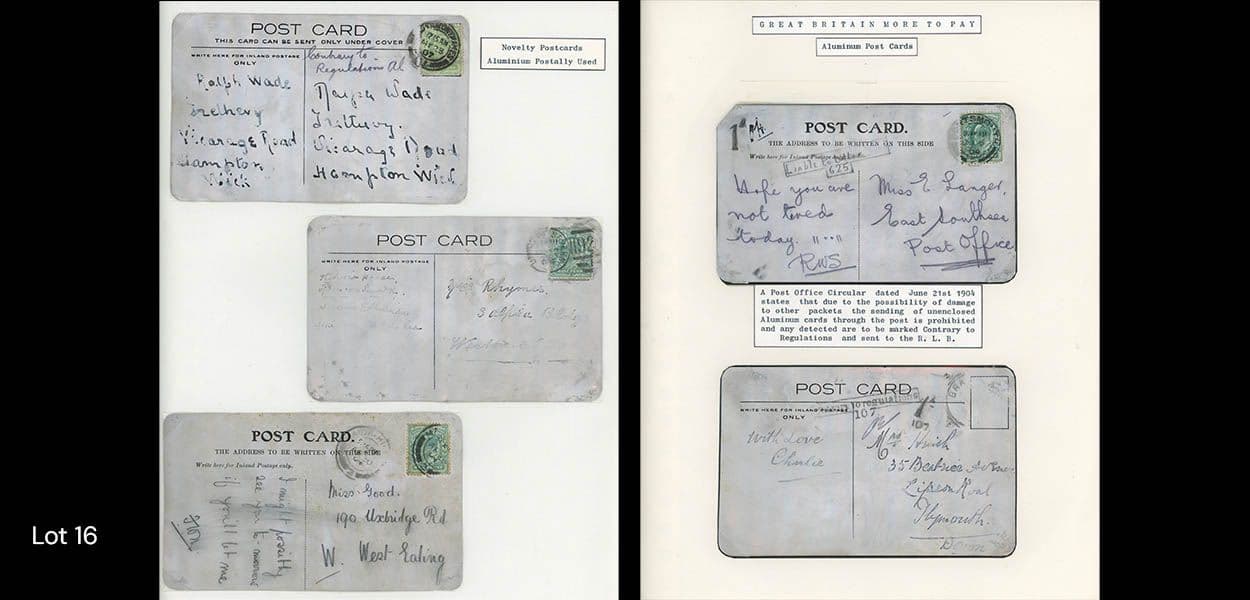 POST CARD
THIS CARD CAN BE SENT ONLY UNDER COVER
WRITE HERE FOR INLAND POSTAGE
ONLY
Contrary to
Regulations
Ralph Wade
Vicarage Road
Hampton
Wick
Ralph Wade
Vicarage Road
Hampton Wick
Novelty Postcards
Aluminium Postally Used
POST CARD
WRITE HERE FOR INLAND POSTAGE
ONLY
Rhymes
3
POST CARD.
THE ADDRESS TO BE WRITTEN ON THIS SIDE
Write here for Inland Postage only.
I might possibly
see you to-morrow
if you'll let me
Miss Good.
190 Uxbridge Rd
W. West Ealing
Lot 16
GREAT BRITAIN MORE TO PAY
Aluminum Post Cards
1d
POST CARD.
THE ADDRESS TO BE WRITTEN ON THIS SIDE
Write here for Inland Postage only
Liable to
625
Hope you are
not tired
today.
RWS
Miss E Langer,
East Southsea
Post Office
A Post Office Circular dated June 21st 1904
states that due to the possibility of damage
to other packets the sending of unenclosed
Aluminum cards through the post is prohibited
and any detected are to be marked Contrary to
Regulations and sent to the R. L. B.
POST CARD
WRITE HERE FOR INLAND POSTAGE
ONLY
to regulations
107
107
With Love
Charlie
Mrs
35 Beatrice Avenue
Lipson Road
Plymouth.
Devon